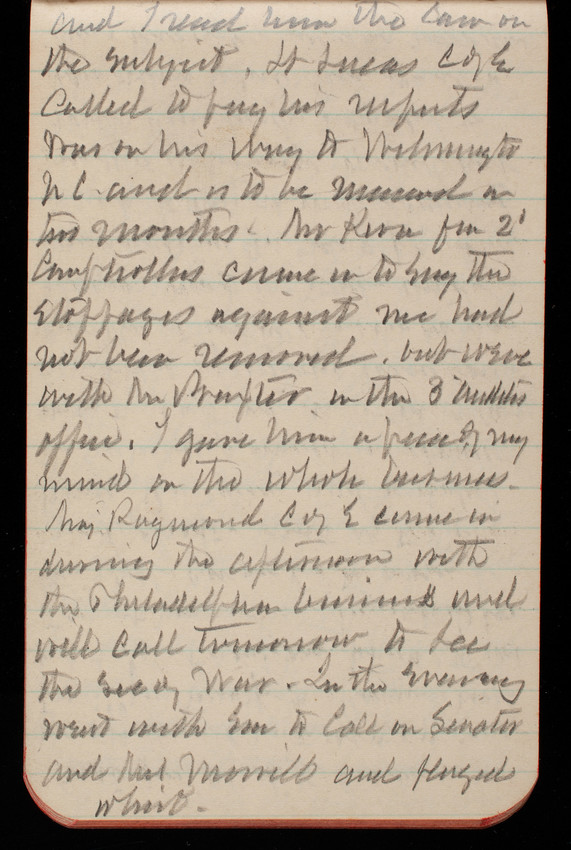 and I read him the law on
the subject. Lt Lucas C of E
Called to pay his respects
was on his way to Wilmington
N C and is to be married in
two months. Mr from 2d
Comptrollers came in to say the
stoppages against me had
not been removed. but were
with Mr in the 3d Auditors
office. I gave him a piece of my
mind on the whole business.
Maj Raymond C of E came in
during the afternoon with
the Philadelphia business and
will call tomorrow to see
the Sec of War. In the Evening
went with Em to Call on Senator
and Mrs Morrill and played
whist.